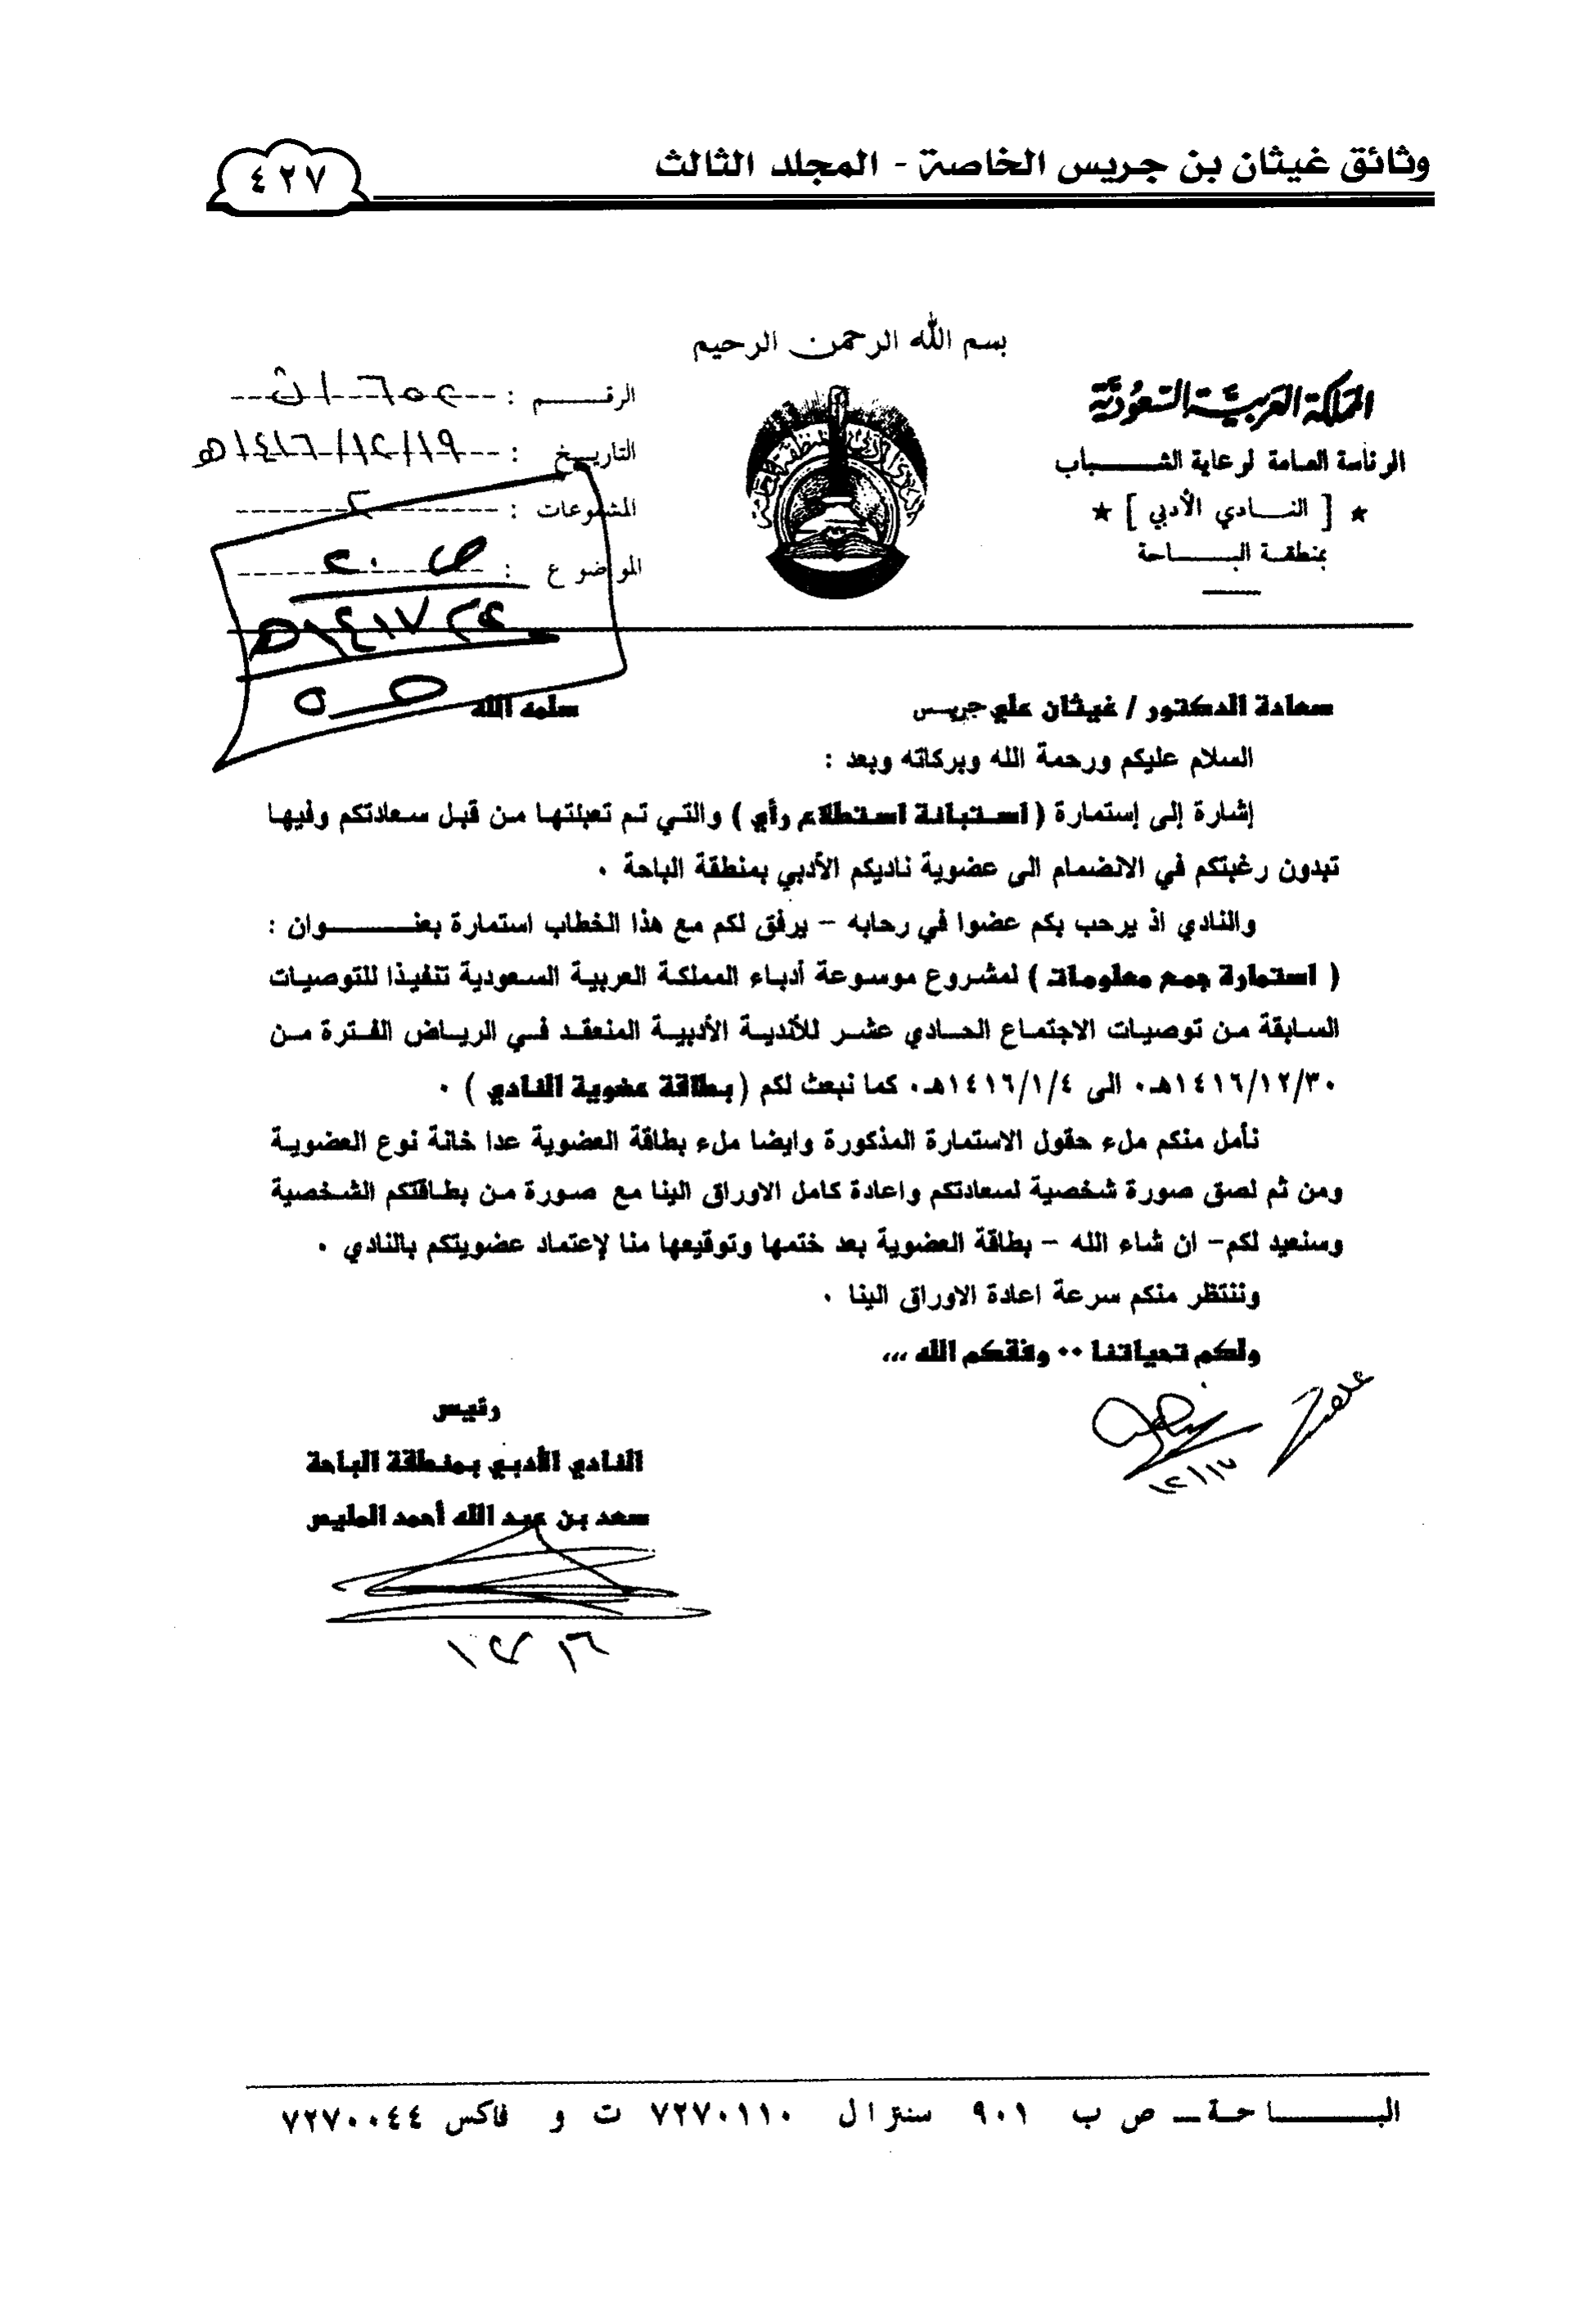 وثائق غيثان بن جريس الخاصة - المجلد الثالث
٤٢٧
بسم الله الرحمن الرحيم
المملكة العربية السعودية
الرئاسة العامة لرعاية الشـــــباب
★ [ النــــادي الأدبي ] ★
بمنطقــة البـــــــاحة
الرقـــــــم :
التاريـــخ : ١٤١٦/١٢/١٩هـ
المشفوعات : ٢
الموضوع :
سعادة الدكتور / غيثان علي جريس
سلمه الله
السلام عليكم ورحمة الله وبركاته وبعد :
إشارة إلى إستمارة ( استبانة استطلاع رأي ) والتي تم تعبئتها من قبل سعادتكم وفيها
تبدون رغبتكم في الانضمام الى عضوية ناديكم الأدبي بمنطقة الباحة ٠
والنادي اذ يرحب بكم عضوا في رحابه – يرفق لكم مع هذا الخطاب استمارة بعنــــــــوان :
( استمارة جمع معلومات ) لمشروع موسوعة أدباء المملكة العربية السعودية تنفيذا للتوصيات
السابقة من توصيات الاجتماع الحادي عشر للأندية الأدبية المنعقد في الرياض الفترة من
١٤١٦/١٢/٣٠هـ٠ الى ١٤١٦/١/٤هـ٠ كما نبعث لكم ( بطاقة عضوية النادي ) ٠
نأمل منكم ملء حقول الاستمارة المذكورة وايضا ملء بطاقة العضوية عدا خانة نوع العضوية
ومن ثم لصق صورة شخصية لسعادتكم واعادة كامل الاوراق الينا مع صورة من بطاقتكم الشخصية
وسنعيد لكم– ان شاء الله – بطاقة العضوية بعد ختمها وتوقيعها منا لإعتماد عضويتكم بالنادي ٠
وننتظر منكم سرعة اعادة الاوراق الينا ٠
ولكم تحياتنا ٠٠ وفقكم الله ،،،
رئيس
النادي الأدبي بمنطقة الباحة
سعد بن عبد الله أحمد المليص
البــــــــــاحـة ــ ص ب ٩٠١ سنترال ٧٢٧٠١١٠ ت و فاكس ٧٢٧٠٠٤٤